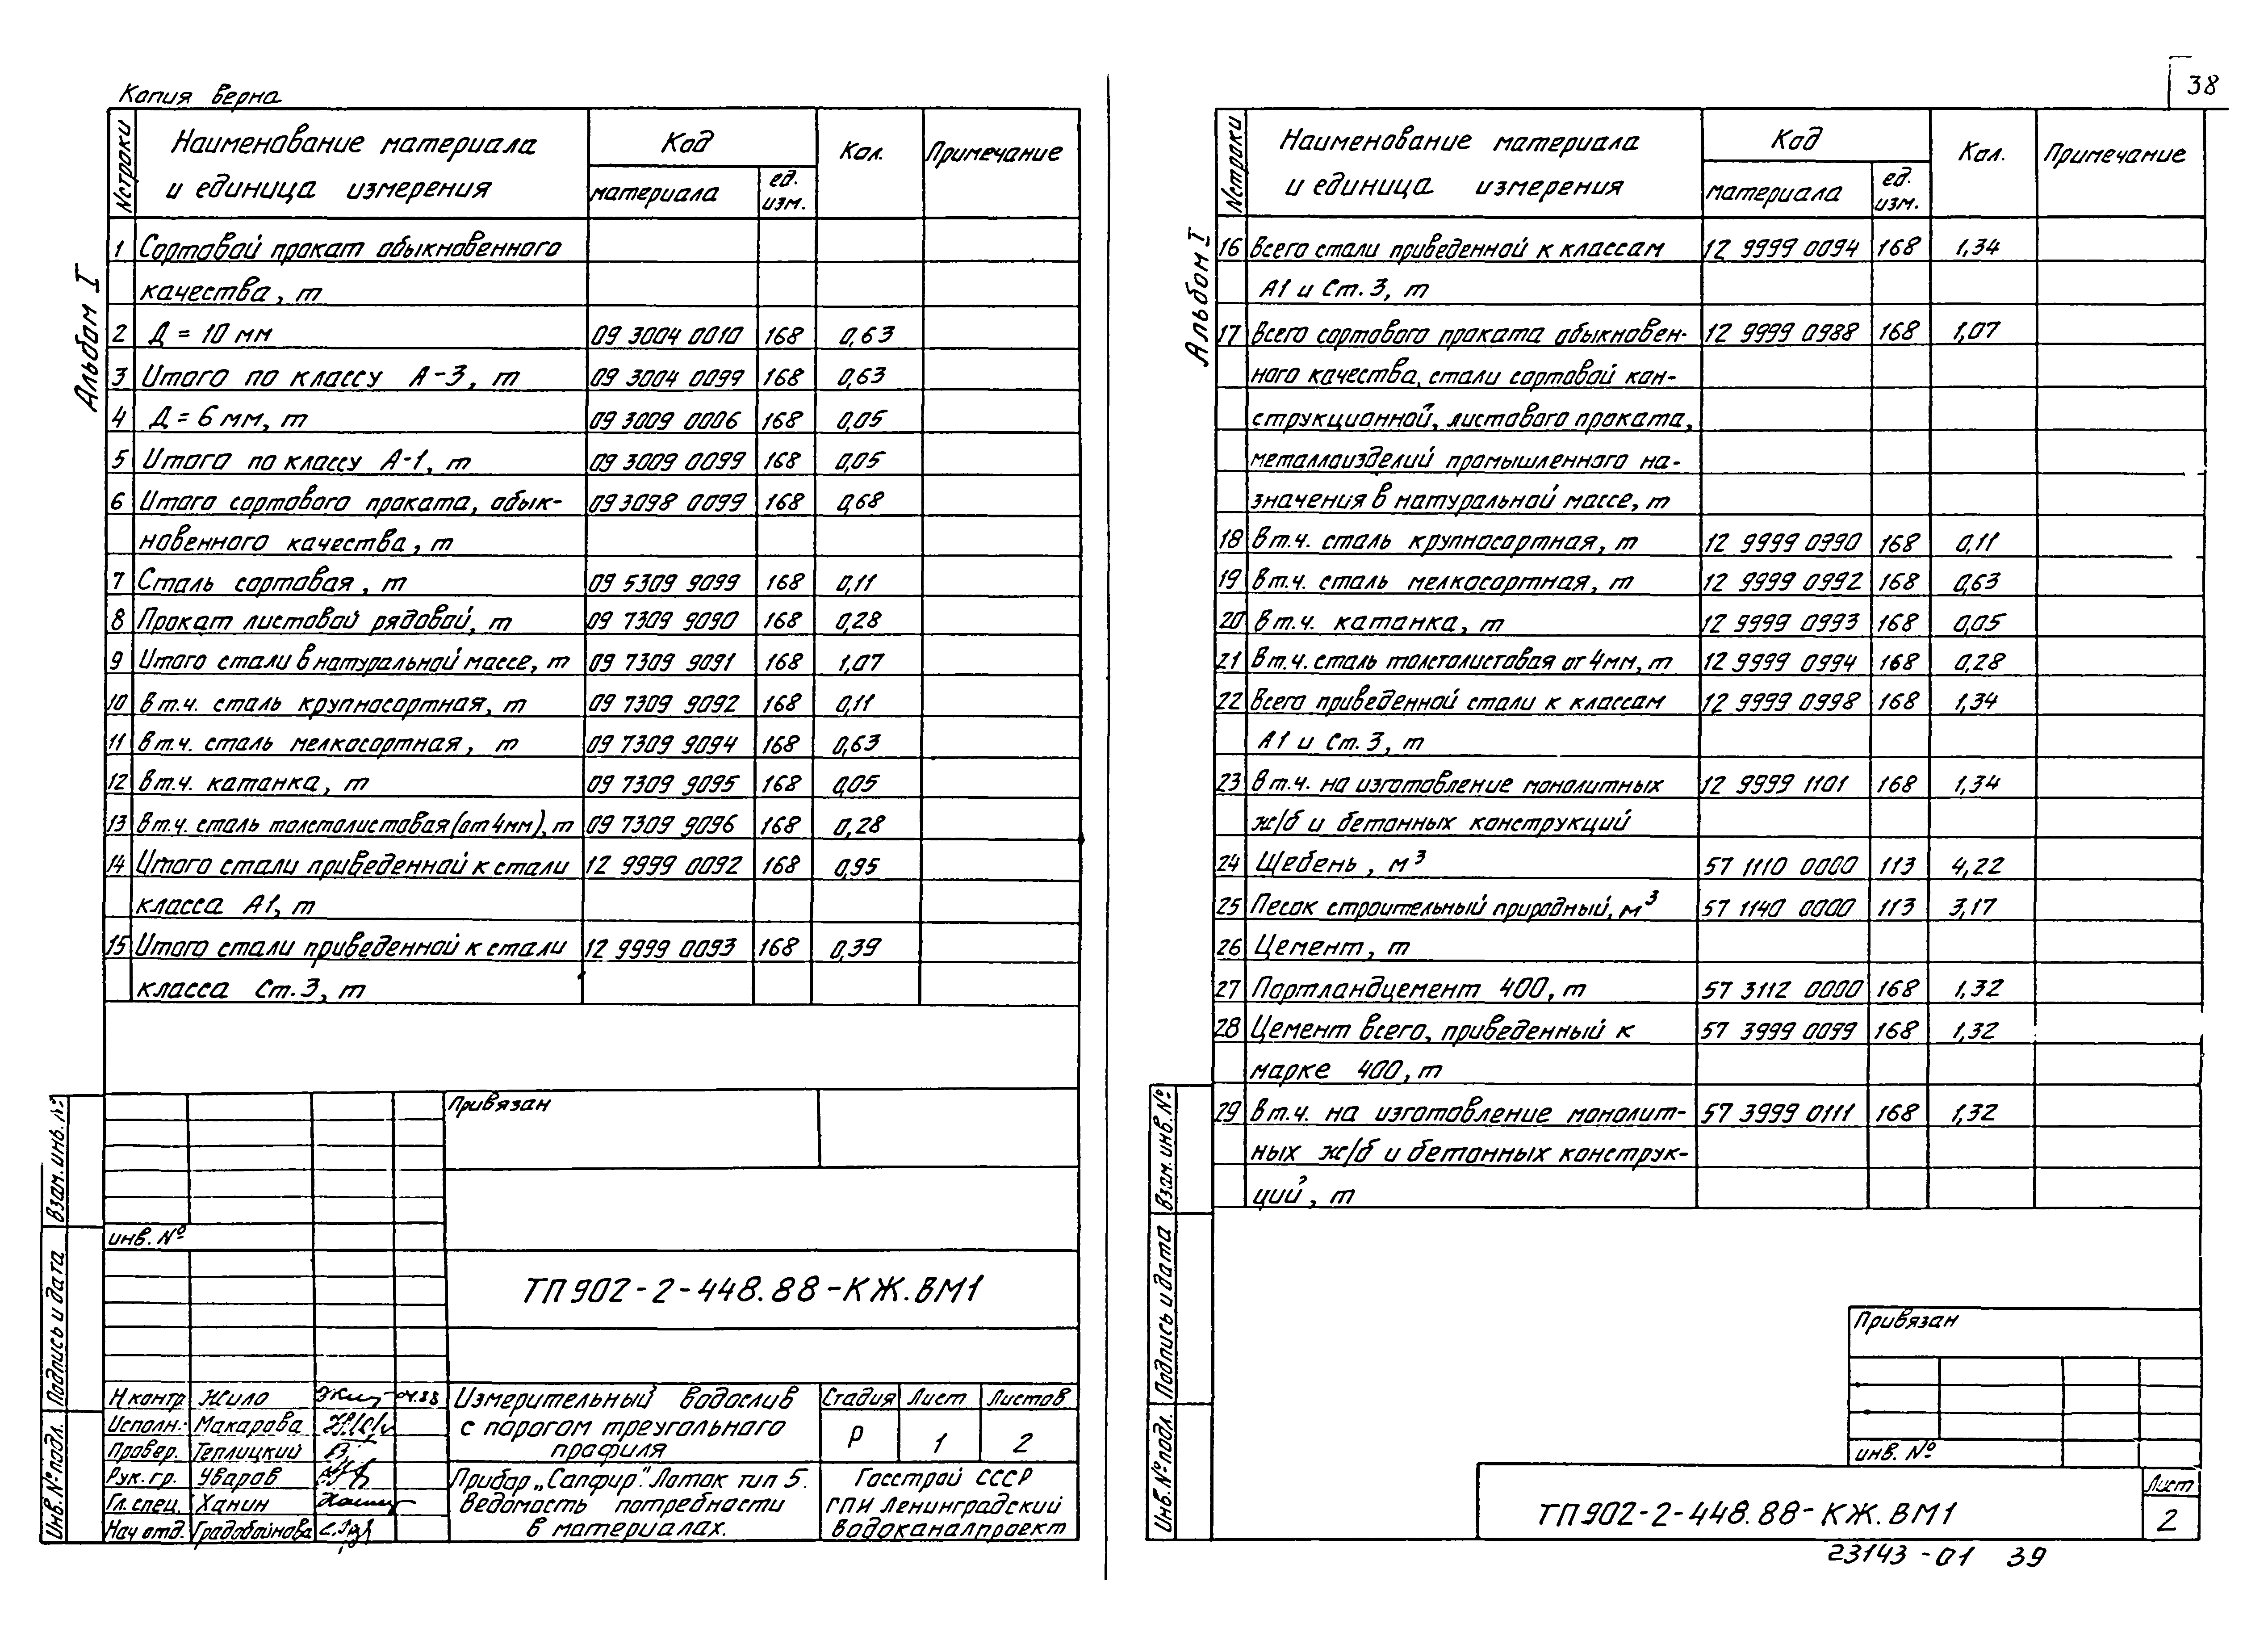 Копия верна
Альбом I
N строки
Наименование материала
и единица измерения
Код
материала
ед. изм.
Кол.
Примечание
1 Сортовой прокат обыкновенного
качества, т
2 Д = 10 мм 09 3004 0010 168 0,63
3 Итого по классу А-3, т 09 3004 0099 168 0,63
4 Д = 6 мм, т 09 3009 0006 168 0,05
5 Итого по классу А-1, т 09 3009 0099 168 0,05
6 Итого сортового проката, обык- 09 3098 0099 168 0,68
новенного качества, т
7 Сталь сортовая, т 09 5309 9099 168 0,11
8 Прокат листовой рядовой, т 09 7309 9090 168 0,28
9 Итого стали в натуральной массе, т 09 7309 9091 168 1,07
10 в т.ч. сталь крупносортная, т 09 7309 9092 168 0,11
11 в т.ч. сталь мелкосортная, т 09 7309 9094 168 0,63
12 в т.ч. катанка, т 09 7309 9095 168 0,05
13 в т.ч. сталь толстолистовая (от 4мм), т 09 7309 9096 168 0,28
14 Итого стали приведенной к стали 12 9999 0092 168 0,95
класса А1, т
15 Итого стали приведенной к стали 12 9999 0093 168 0,39
класса Ст. 3, т
Привязан
инв. №
Взам. инв. №
Подпись и дата
Инв. № подл.
ТП 902-2-448.88-КЖ.ВМ1
Н контр. Жило 04.88
Исполн: Макарова
Провер. Теплицкий
Рук. гр. Уваров
Гл. спец. Ханин
Нач отд. Градобойнова
Измерительный водослив
с порогом треугольного
профиля
Стадия Лист Листов
Р 1 2
Прибор „Сапфир". Лоток тип 5.
Ведомость потребности
в материалах.
Госстрой СССР
ГПИ Ленинградский
Водоканалпроект
38
Альбом I
N строки
Наименование материала
и единица измерения
Код
материала
ед. изм.
Кол.
Примечание
16 Всего стали приведенной к классам 12 9999 0094 168 1,34
А1 и Ст. 3, т
17 Всего сортового проката обыкновен- 12 9999 0988 168 1,07
ного качества, стали сортовой кон-
струкционной, листового проката,
металлоизделий промышленного на-
значения в натуральной массе, т
18 в т.ч. сталь крупносортная, т 12 9999 0990 168 0,11
19 в т.ч. сталь мелкосортная, т 12 9999 0992 168 0,63
20 в т.ч. катанка, т 12 9999 0993 168 0,05
21 в т.ч. сталь толстолистовая от 4мм, т 12 9999 0994 168 0,28
22 Всего приведенной стали к классам 12 9999 0998 168 1,34
А1 и Ст. 3, т
23 в т.ч. на изготовление монолитных 12 9999 1101 168 1,34
ж/б и бетонных конструкций
24 Щебень, м³ 57 1110 0000 113 4,22
25 Песок строительный природный, м³ 57 1140 0000 113 3,17
26 Цемент, т
27 Портландцемент 400, т 57 3112 0000 168 1,32
28 Цемент всего, приведенный к 57 3999 0099 168 1,32
марке 400, т
29 в т.ч. на изготовление монолит- 57 3999 0111 168 1,32
ных ж/б и бетонных конструк-
ций, т
Взам. инв. №
Подпись и дата
Инв. № подл.
Привязан
инв. №
ТП 902-2-448.88-КЖ.ВМ1
Лист
2
23143-01 39